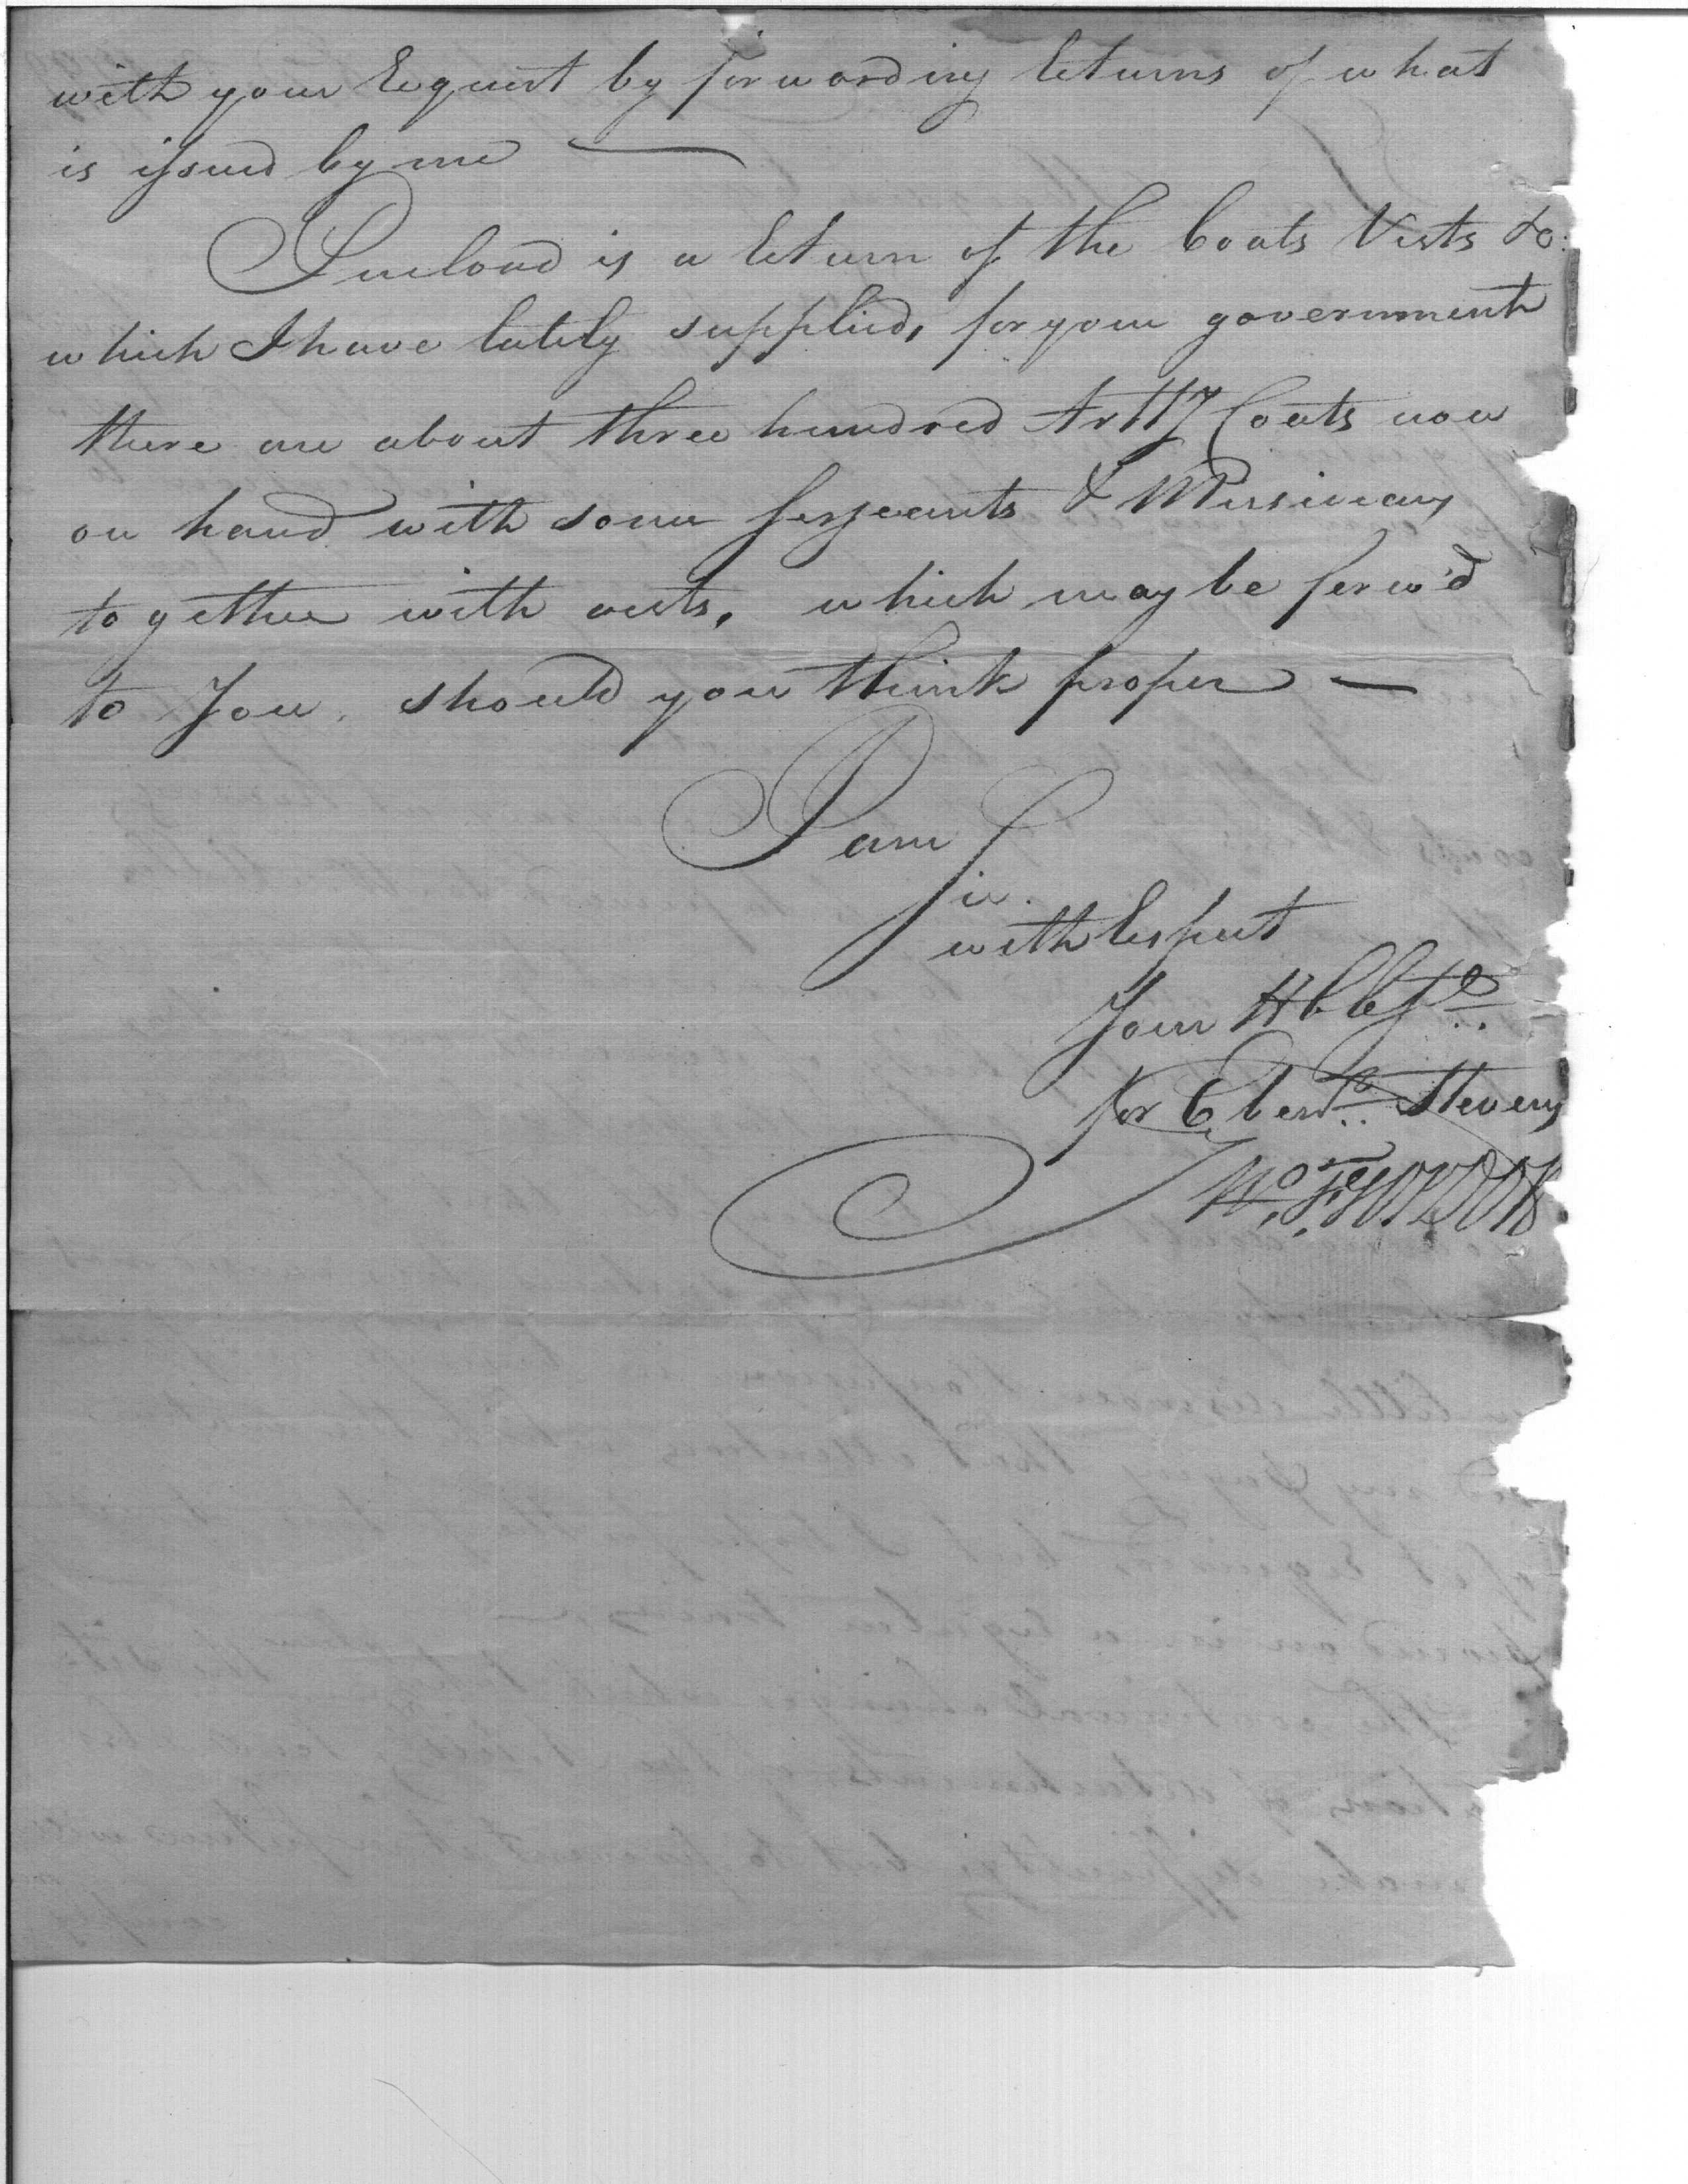 with your Request by forwarding Returns of what
is issued by me —
Inclosed is a Return of the Coats Vests &c:
which I have lately supplied, for your government
there are about three hundred Artlly Coats now
on hand with some Serjeants & Musicians
together with vests, which may be forw'd
to You, should you think proper —
I am
Sir.
with Respect
Your H Ob St
for Ebenr. Stevens
Wm